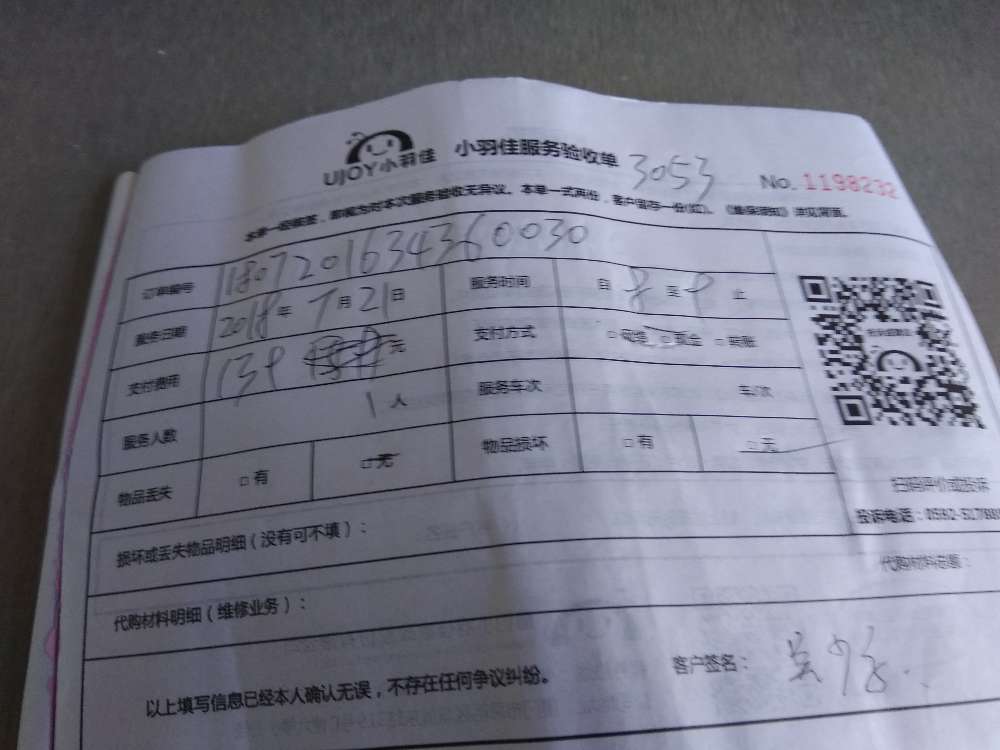 UJOY小羽佳 小羽佳服务验收单 3053 No. 1198232
本单一经签, 即视为对本次服务验收无异议。本单一式两份, 客户留存一份(红)。
订单编号 1807201634360030
服务日期 2018年7月21日 服务时间 自8至9止
支付费用 139 元 支付方式 □ □现金 □转账
服务人数 1人 服务车次 车/次
物品丢失 □有 □无 物品损坏 □有 □无
扫码评价或投诉
投诉电话:0592-517
损坏或丢失物品明细(没有可不填):
代购材料总额:
代购材料明细(维修业务):
以上填写信息已经本人确认无误,不存在任何争议纠纷。 客户签名: